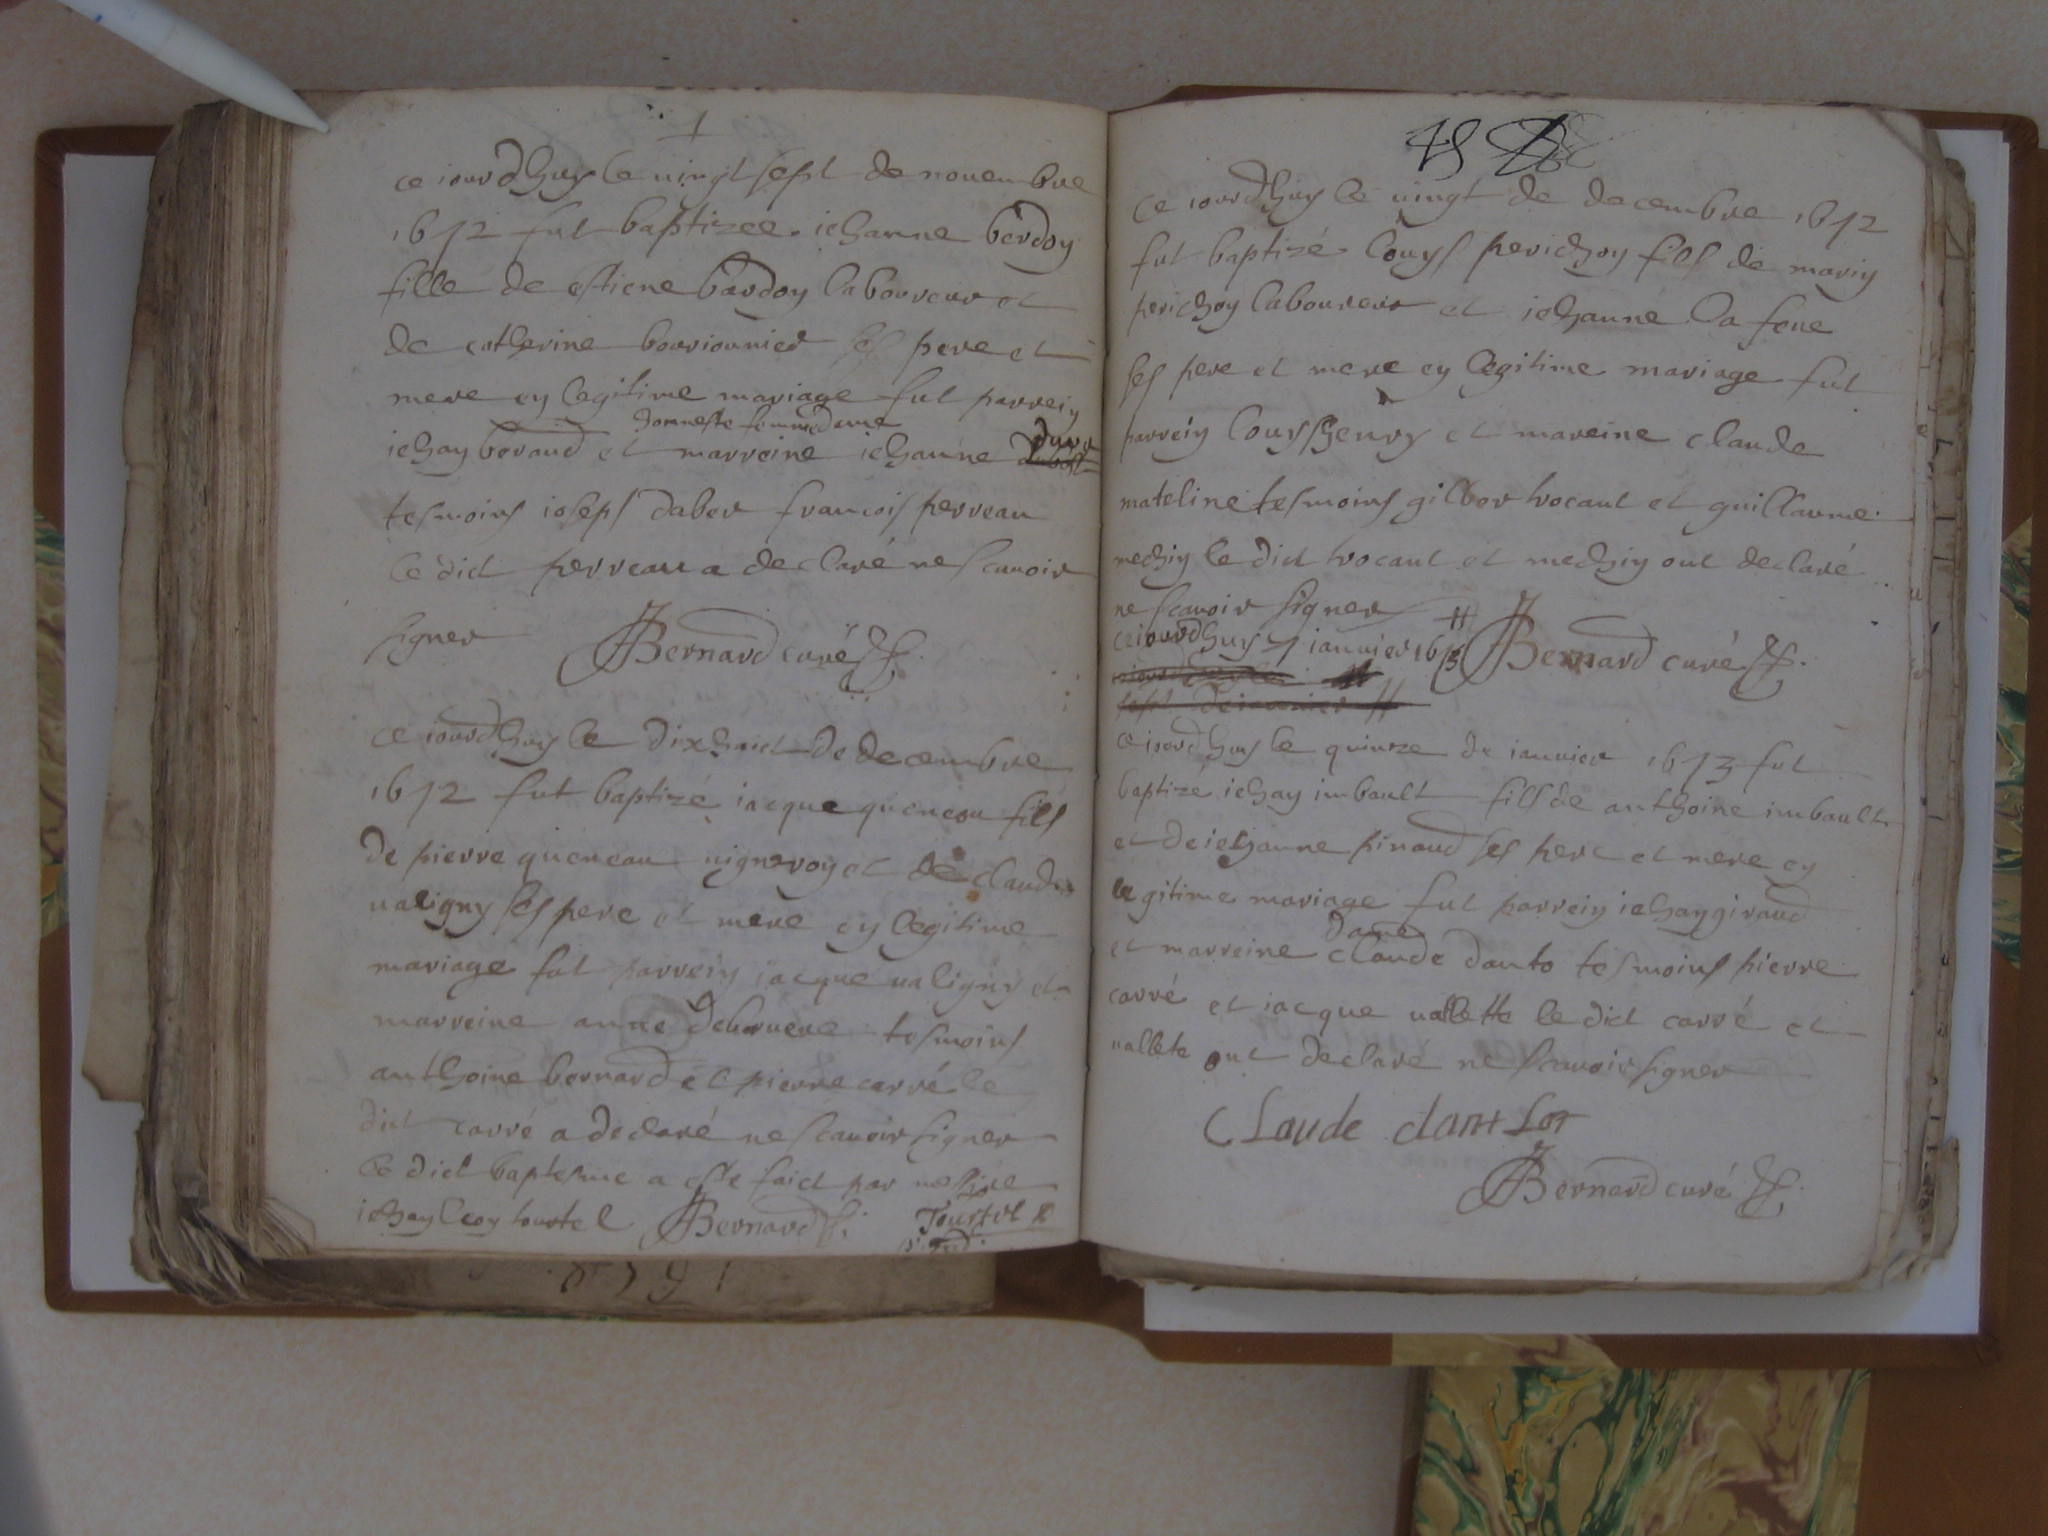 ce iourdhuy le uingt sept de nouembre
1672 fut baptizée iehanne bardoy
fille de estiene bardoy laboureur et
de catherine bouriounier ses pere et
mere en legitime mariage fut parrein
honneste femme dame
iehan beraud et marreine iehanne
tesmoins ioseph daber francois perreau
le dict perreau a declaré ne scauoir
signer Bernard curé
ce iourdhuy le dixhuict de decembre
1672 fut baptizé iacque queneau fils
de pierre queneau uigneron et de claude
ualigny ses pere et mere en legitime
mariage fut parrein iacque ualigny et
marreine anne debruere tesmoins
anthoine bernard et pierre carré le
dict carré a declaré ne scauoir signer
le dict baptesme a este faict par messire
iehan leon tourtel Bernard Tourtel
48
ce iourdhuy le uingt de decembre 1672
fut baptizé louys perichon fils de marin
perichon laboureur et iehanne la
ses pere et mere en legitime mariage fut
parrein louys henry et mareine claude
mateline tesmoins gilber trocaut et guillaume
mechin le dict trocaut et mechin ont declaré
ne scauoir signer
ce iourdhuy 7 ianuier 1673 Bernard curé
sept de ianuier
ce iourdhuy le quinze de ianuier 1673 fut
baptizé iehan imbault fils de anthoine imbault
et de iehanne pinaud ses pere et mere en
legitime mariage fut parrein iehan giraud
dame
et marreine claude danto tesmoins pierre
carré et iacque uallette le dict carré et
uallete ont declaré ne scauoir signer
Claude dant
Bernard curé